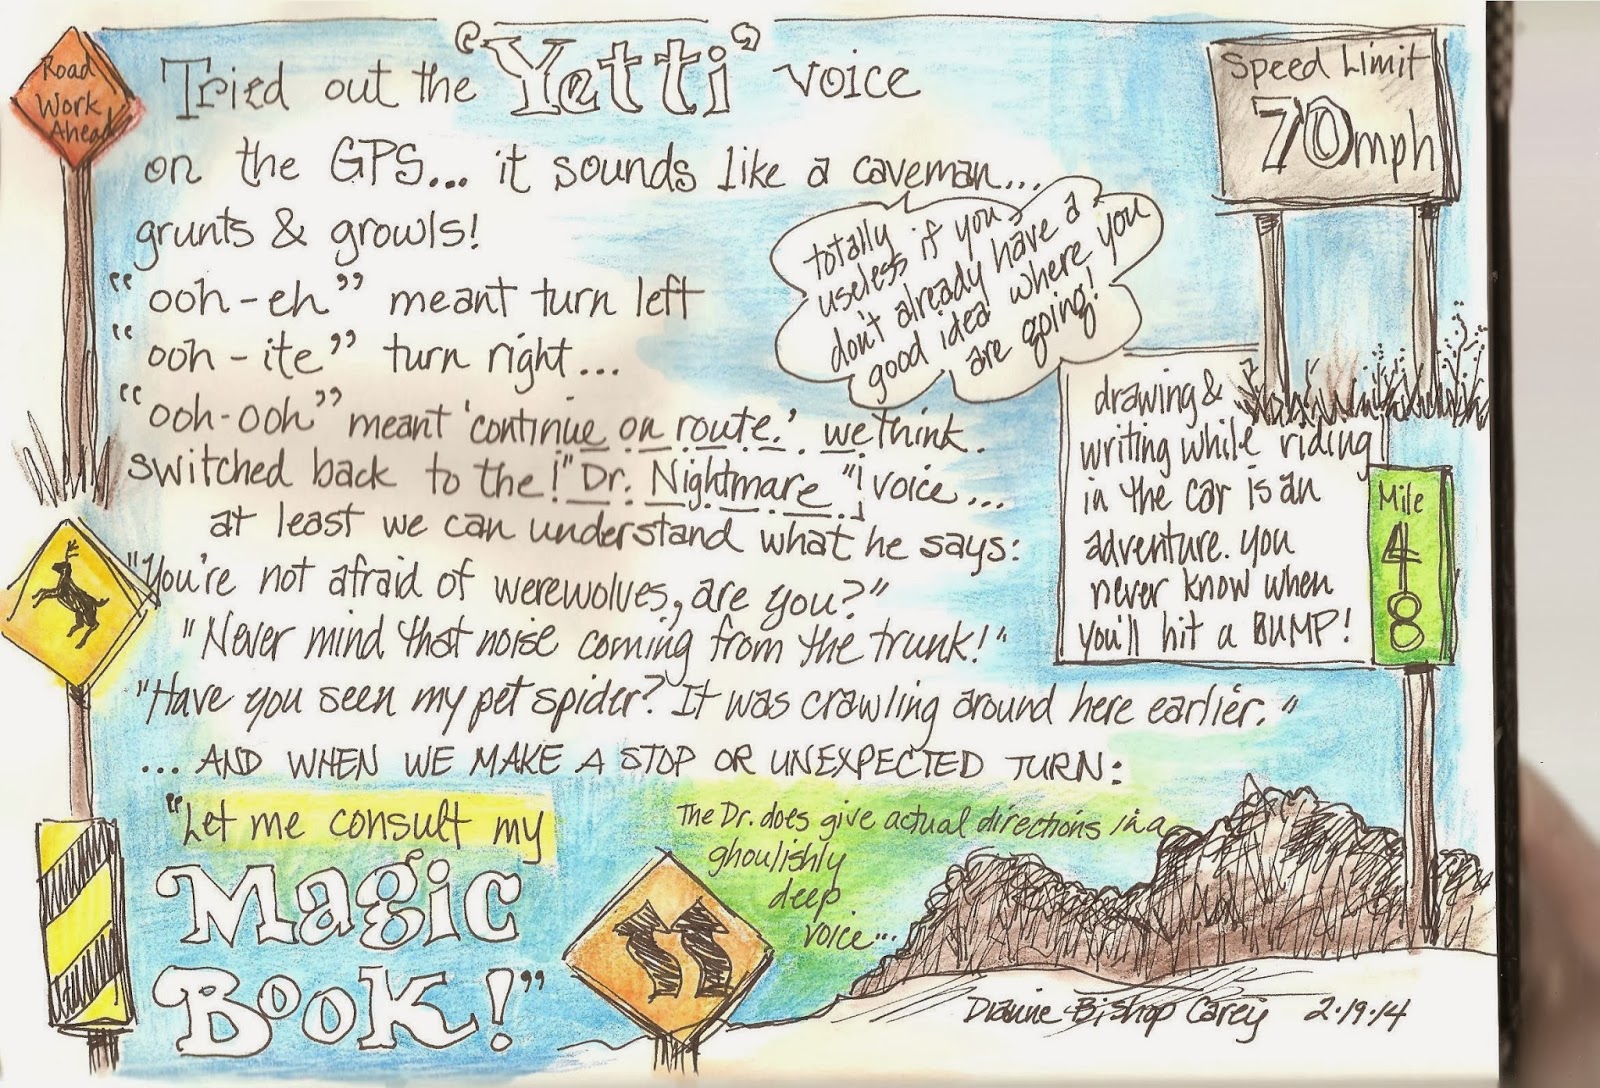 Road
Work
Ahead
Tried out the 'Yetti' voice
on the GPS... it sounds like a caveman...
grunts & growls!
"ooh-eh" meant turn left
"ooh-ite" turn right...
"ooh-ooh" meant 'continue on route.' we think.
switched back to the "Dr. Nightmare" voice...
at least we can understand what he says:
"You're not afraid of werewolves, are you?"
"Never mind that noise coming from the trunk!"
"Have you seen my pet spider? It was crawling around here earlier."
... AND WHEN WE MAKE A STOP OR UNEXPECTED TURN:
"Let me consult my
Magic
Book!"
Speed Limit
70mph
totally
useless if you
don't already have a
good idea where you
are going!
drawing &
writing while riding
in the car is an
adventure. you
never know when
you'll hit a BUMP!
Mile
48
The Dr. does give actual directions in a
ghoulishly
deep
voice...
Dianne Bishop Carey 2.19.14